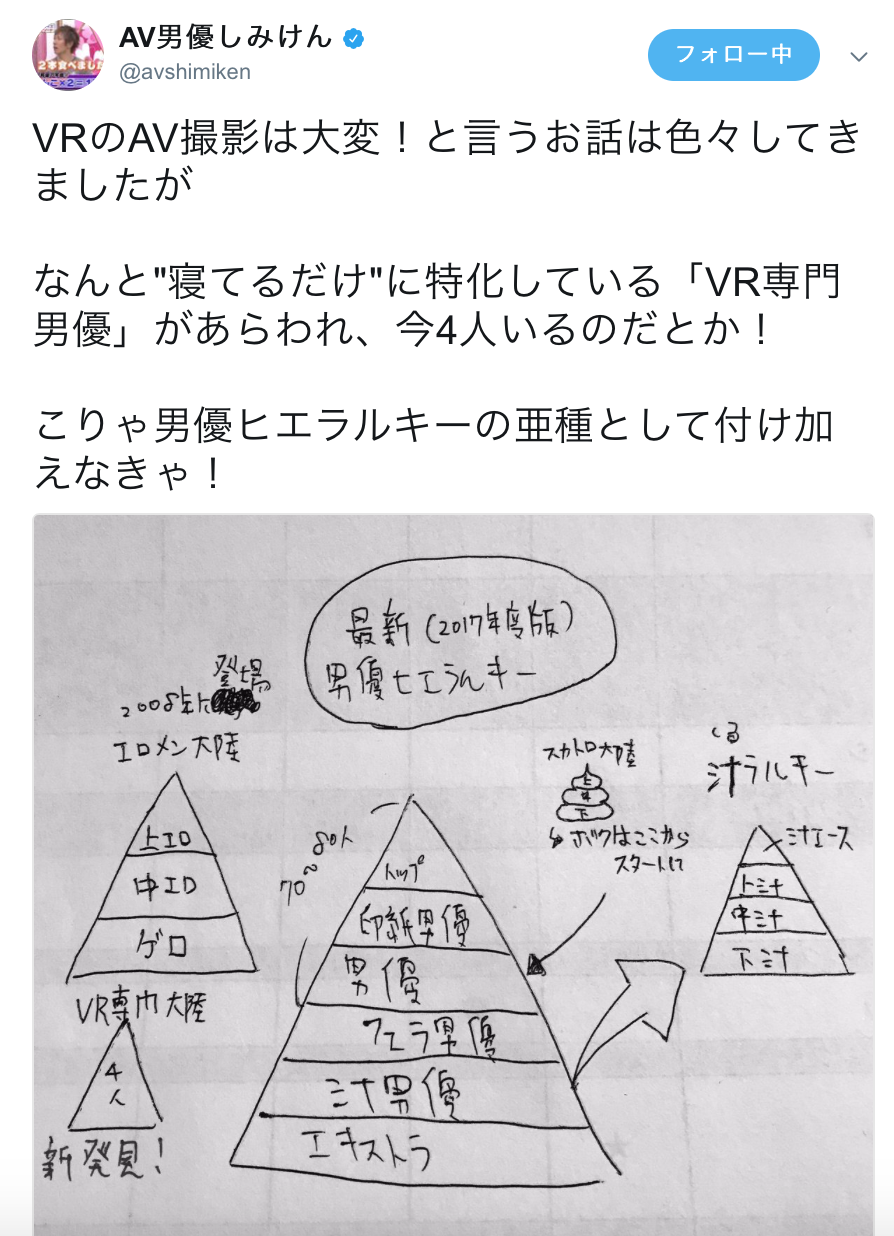 AV男優しみけん
@avshimiken
フォロー中
VRのAV撮影は大変！と言うお話は色々してき
ましたが
なんと"寝てるだけ"に特化している「VR専門
男優」があらわれ、今4人いるのだとか！
こりゃ男優ヒエラルキーの亜種として付け加
えなきゃ！
最新(2017年度版)
男優ヒエラルキー
登場
2008年に
エロメン大陸
上エロ
中エロ
ゲロ
VR専門大陸
4
人
新発見！
70~80人
トップ
印紙男優
男優
フェラ男優
汁男優
エキストラ
スカトロ大陸
上
中
下
↳ボクはここから
スタートして
しる
汁ラルキー
汁エース
上汁
中汁
下汁